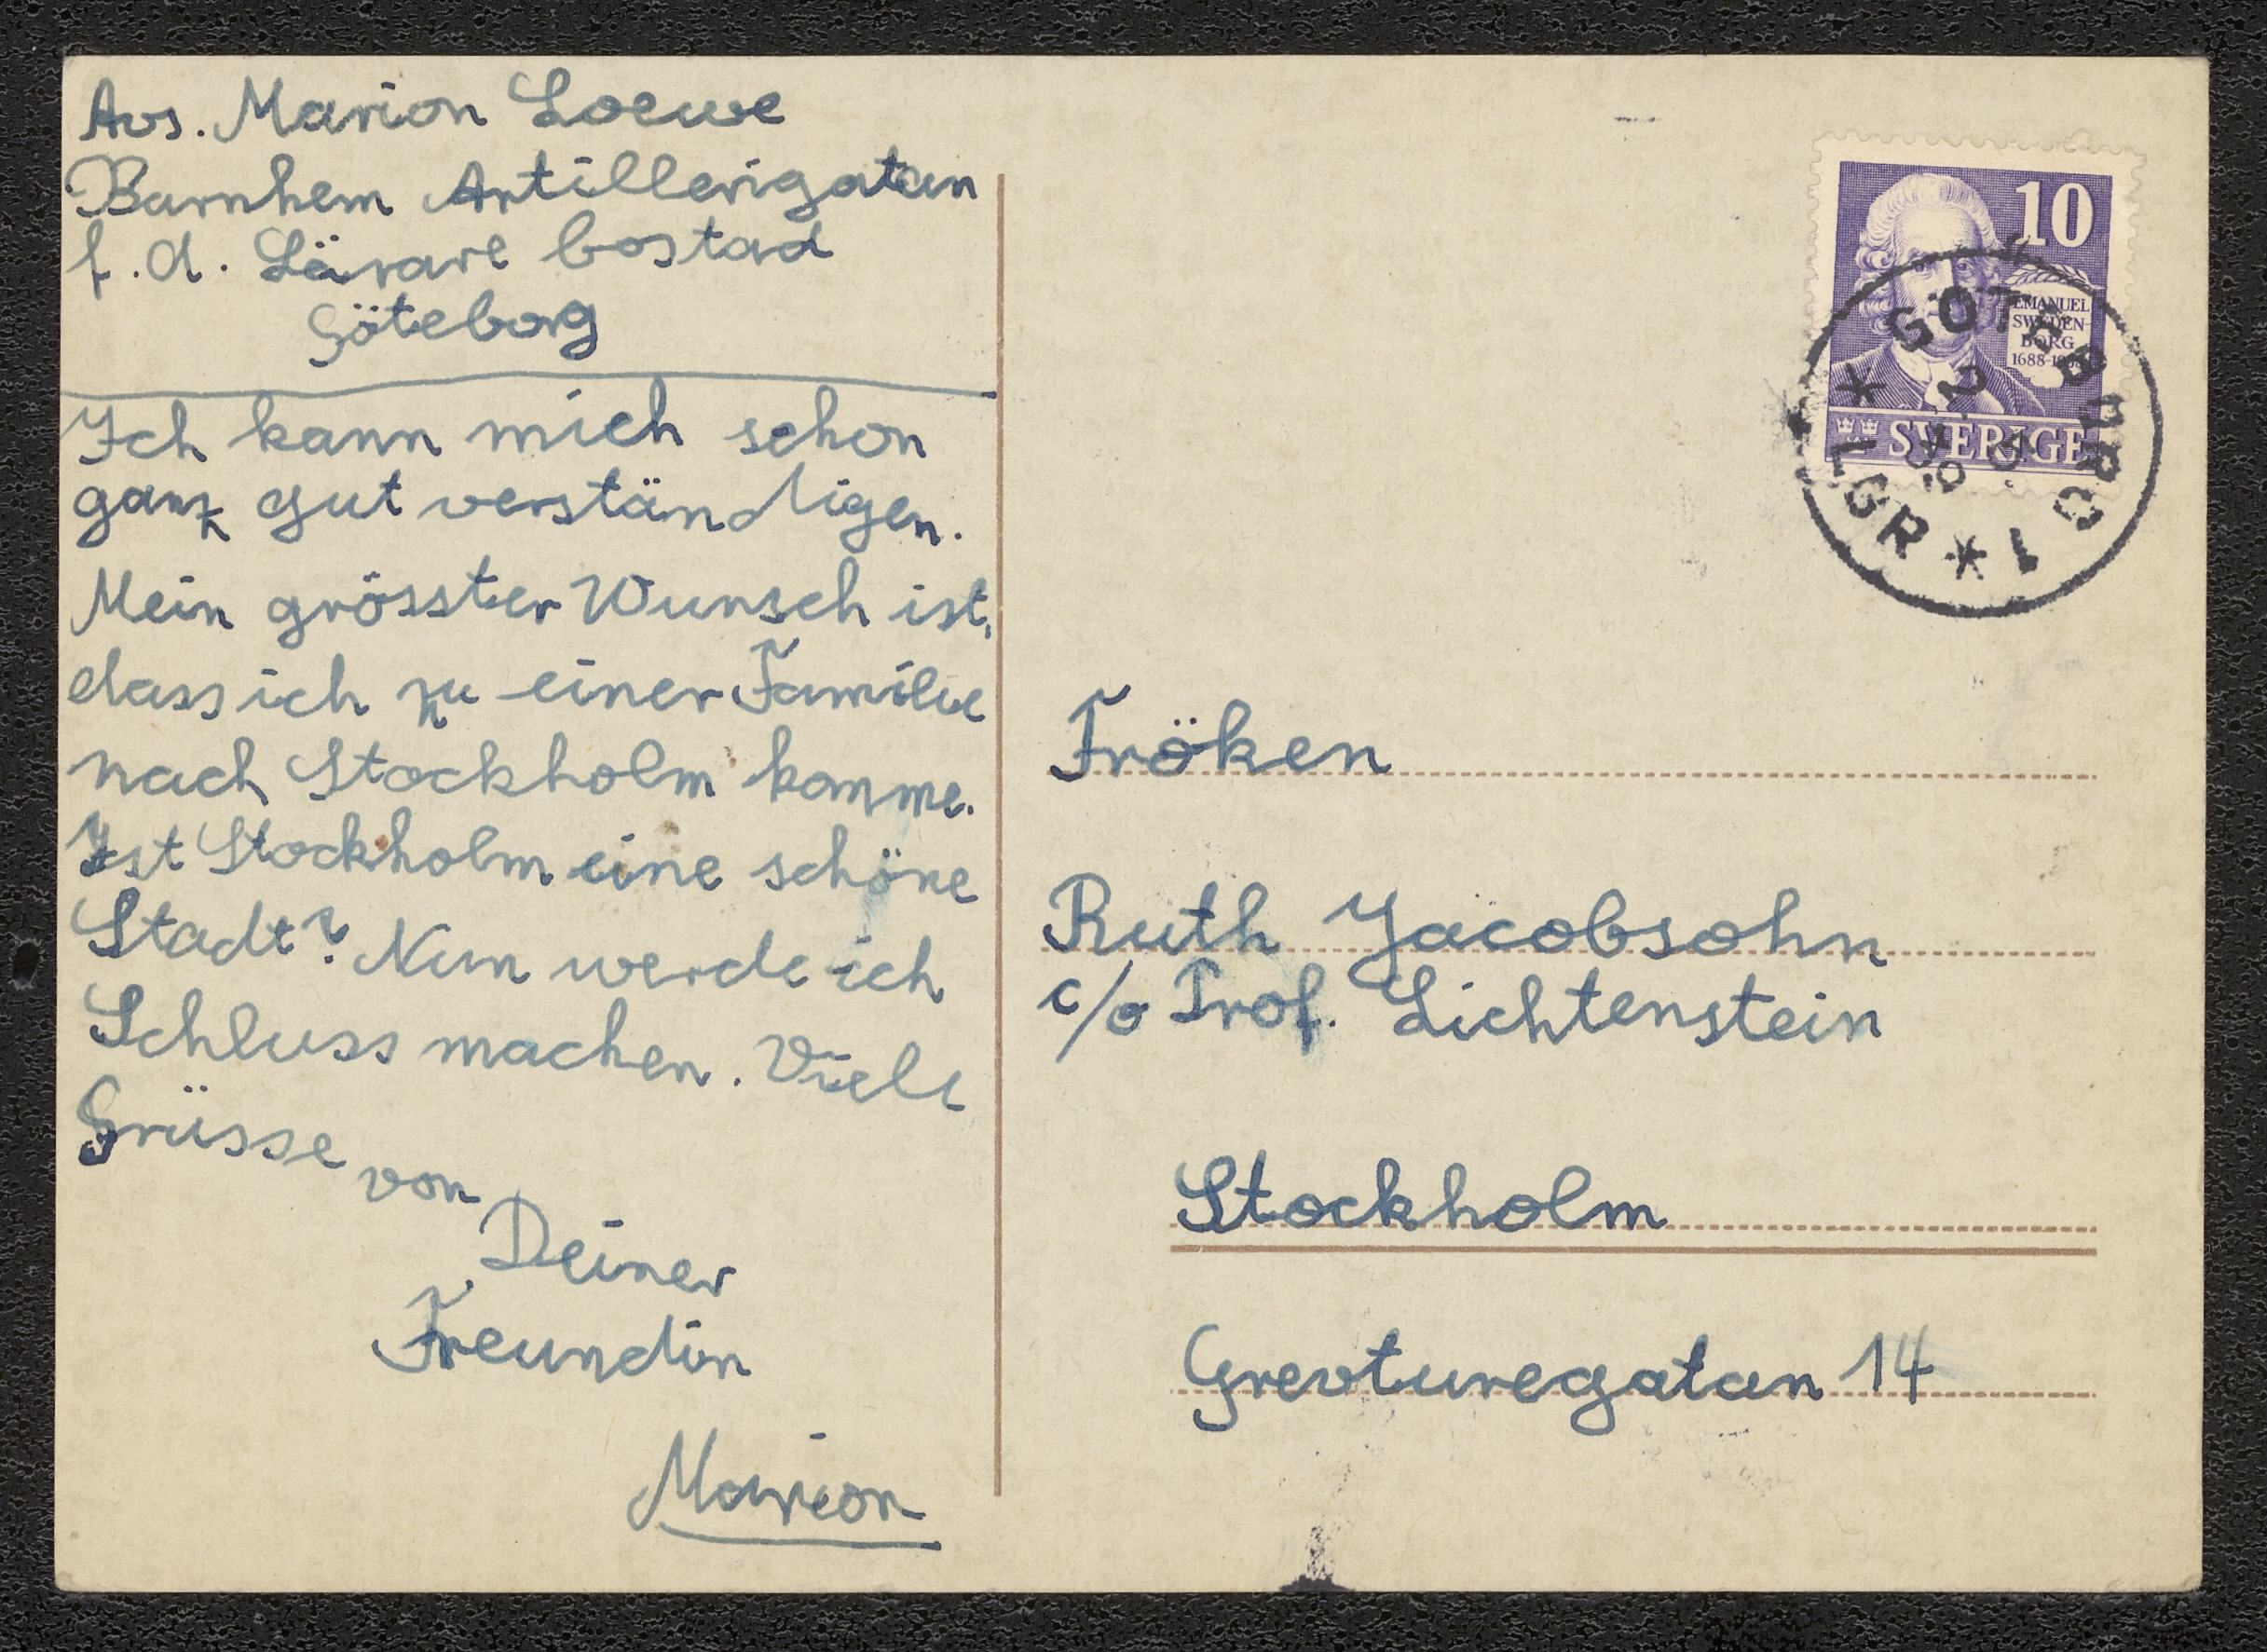 Avs. Marion Loewe
Barnhem Artillerigatan
f.d. Lärare bostad
Göteborg
Ich kann mich schon
ganz gut verständigen.
Mein grösster Wunsch ist,
dass ich zu einer Familie
nach Stockholm komme.
Ist Stockholm eine schöne
Stadt? Nun werde ich
Schluss machen. Viele
Grüsse von
Deiner
Freundin
Marion
10
EMANUEL
SWEDEN-
BORG
SVERIGE
GÖTEBORG 1
LGR
Fröken
Ruth Jacobsohn
c/o Prof. Lichtenstein
Stockholm
Grevturegatan 14